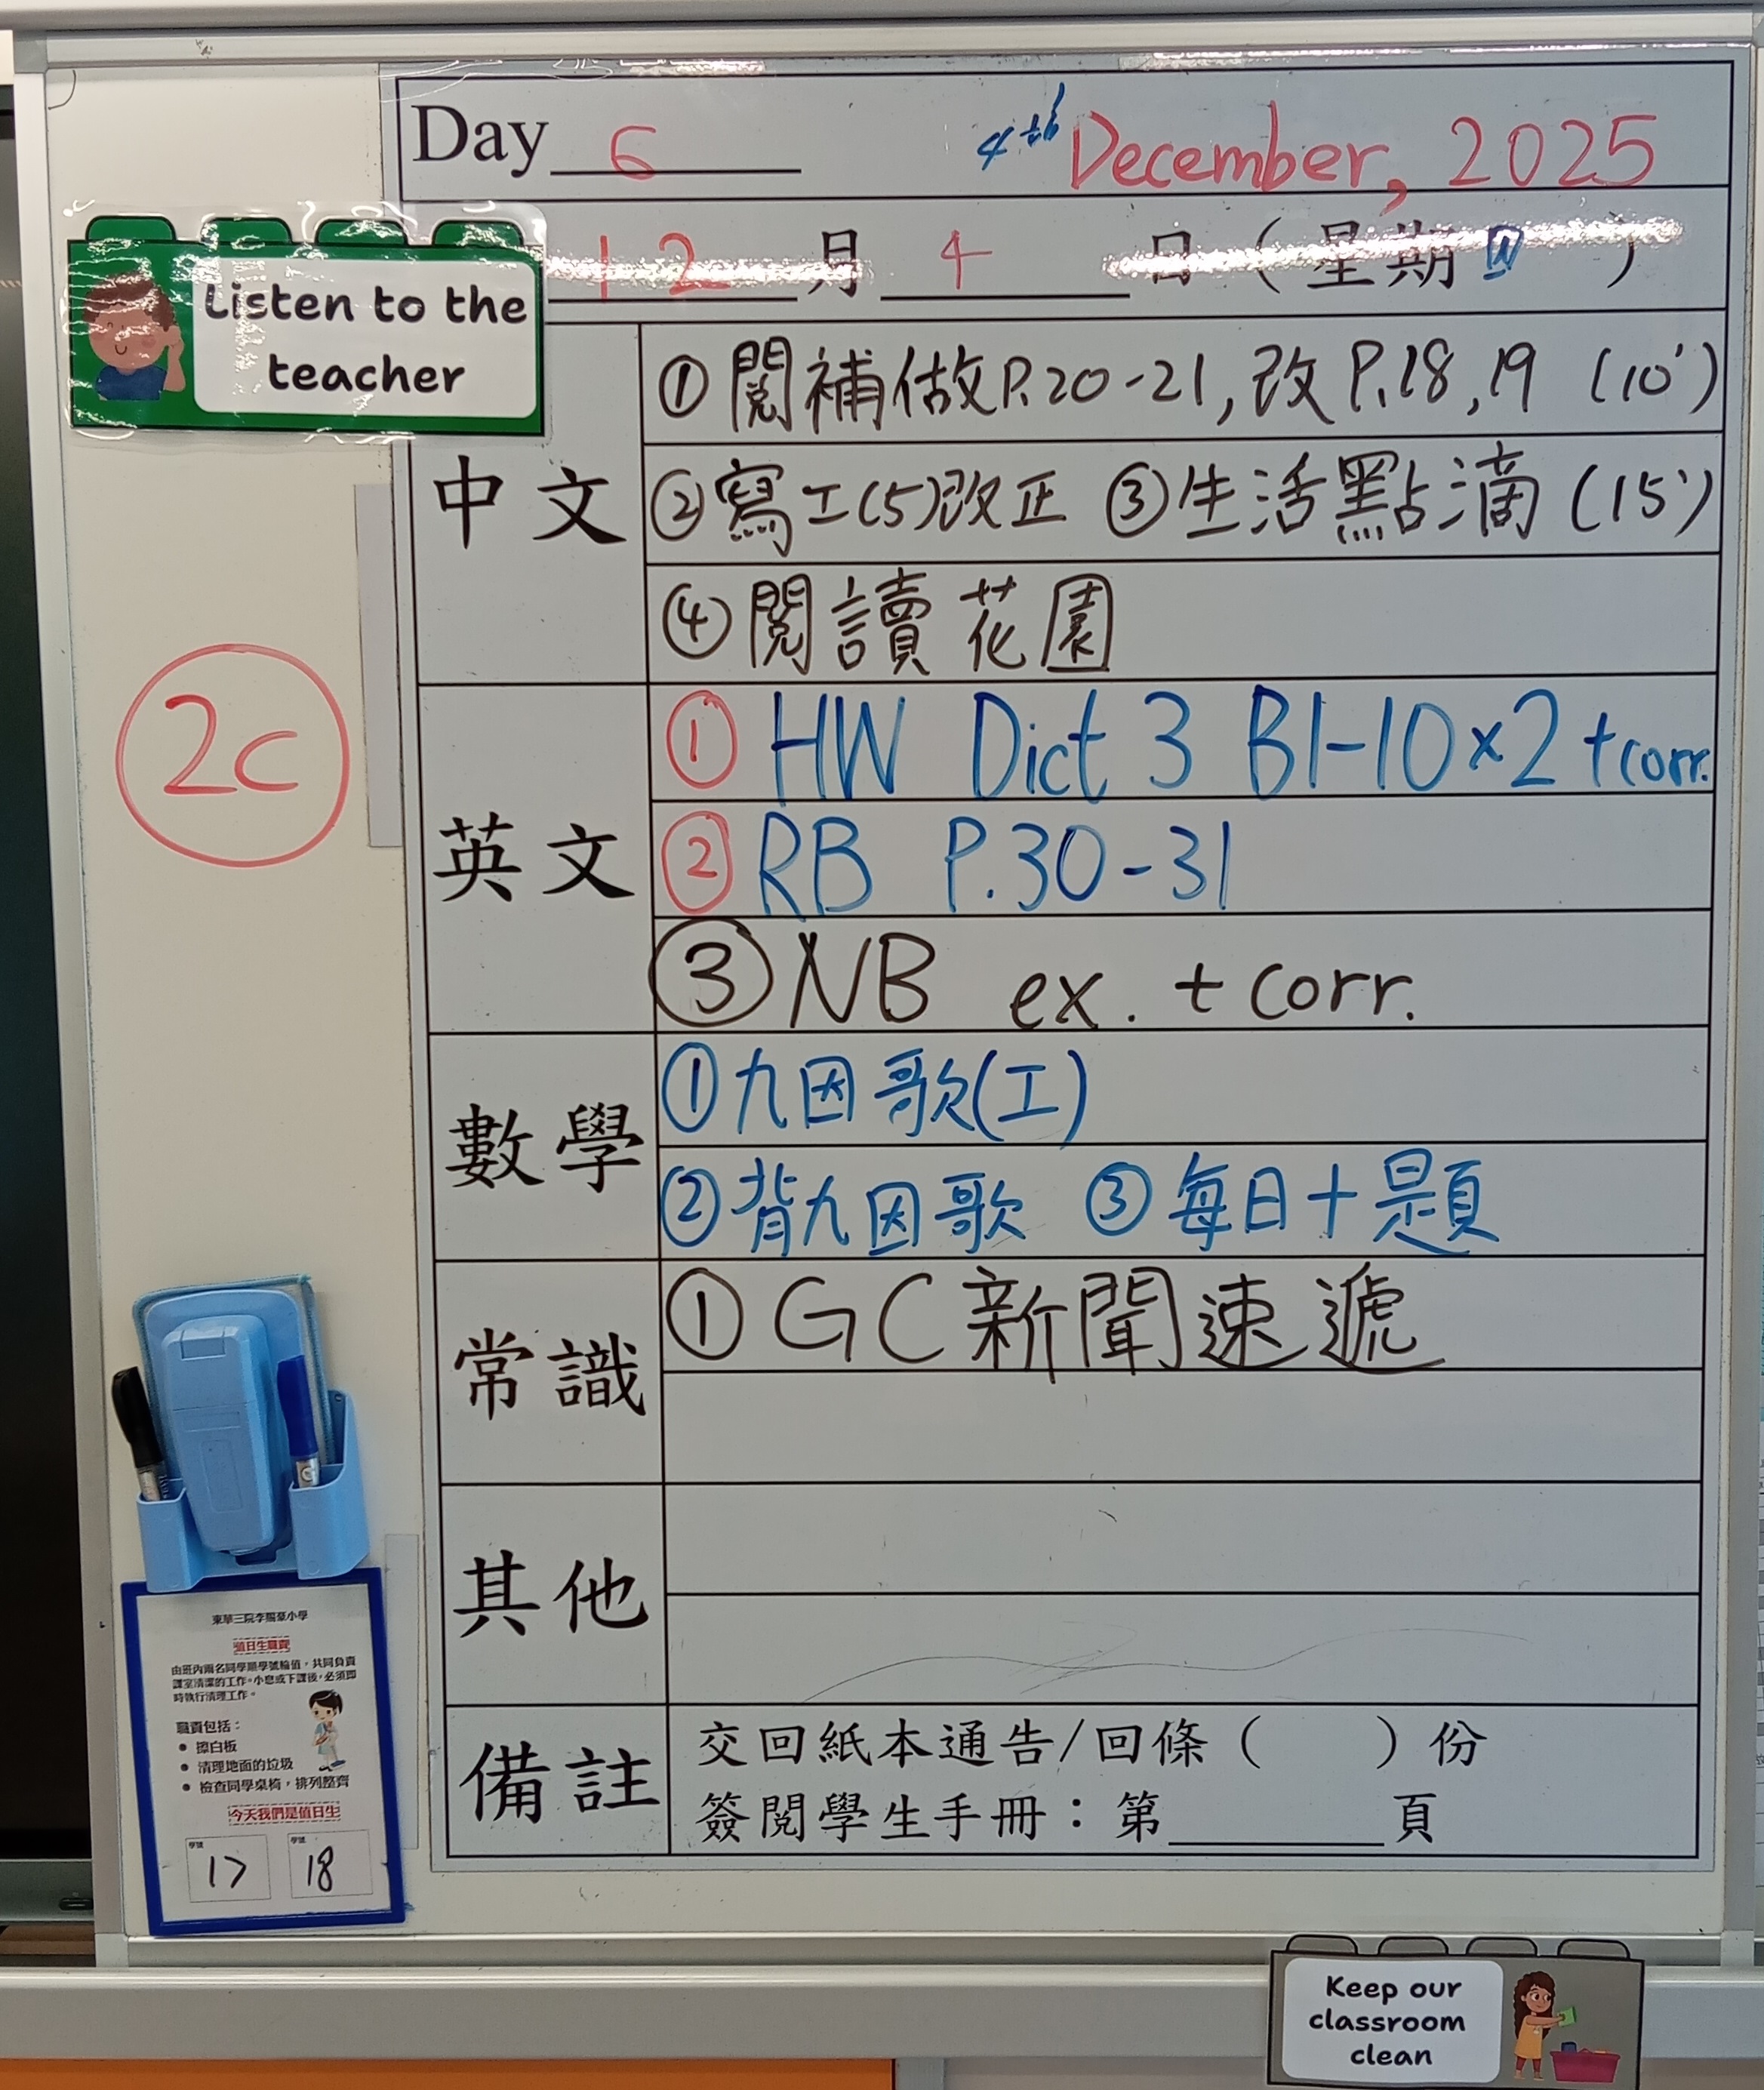 Day 6 4th December, 2025
12月4日（星期四）
Listen to the
teacher
中文
①閱補做P.20-21,改P.18,19 (10')
②寫工(5)改正 ③生活點滴 (15')
④閱讀花園
2C
英文
① HW Dict 3 B1-10×2+corr.
② RB P.30-31
③ NB ex. + corr.
數學
①九因歌(工)
②背九因歌 ③每日十題
常識
①GC新聞速遞
其他
備註
交回紙本通告/回條（ ）份
簽閱學生手冊：第______頁
東華三院李賜豪小學
值日生職責
由班內兩名同學順學號輪值，共同負責
課室清潔的工作。小息或下課後，必須即
時執行清理工作。
職責包括：
• 擦白板
• 清理地面的垃圾
• 檢查同學桌椅，排列整齊
今天我們是值日生
學號 學號
17 18
Keep our
classroom
clean